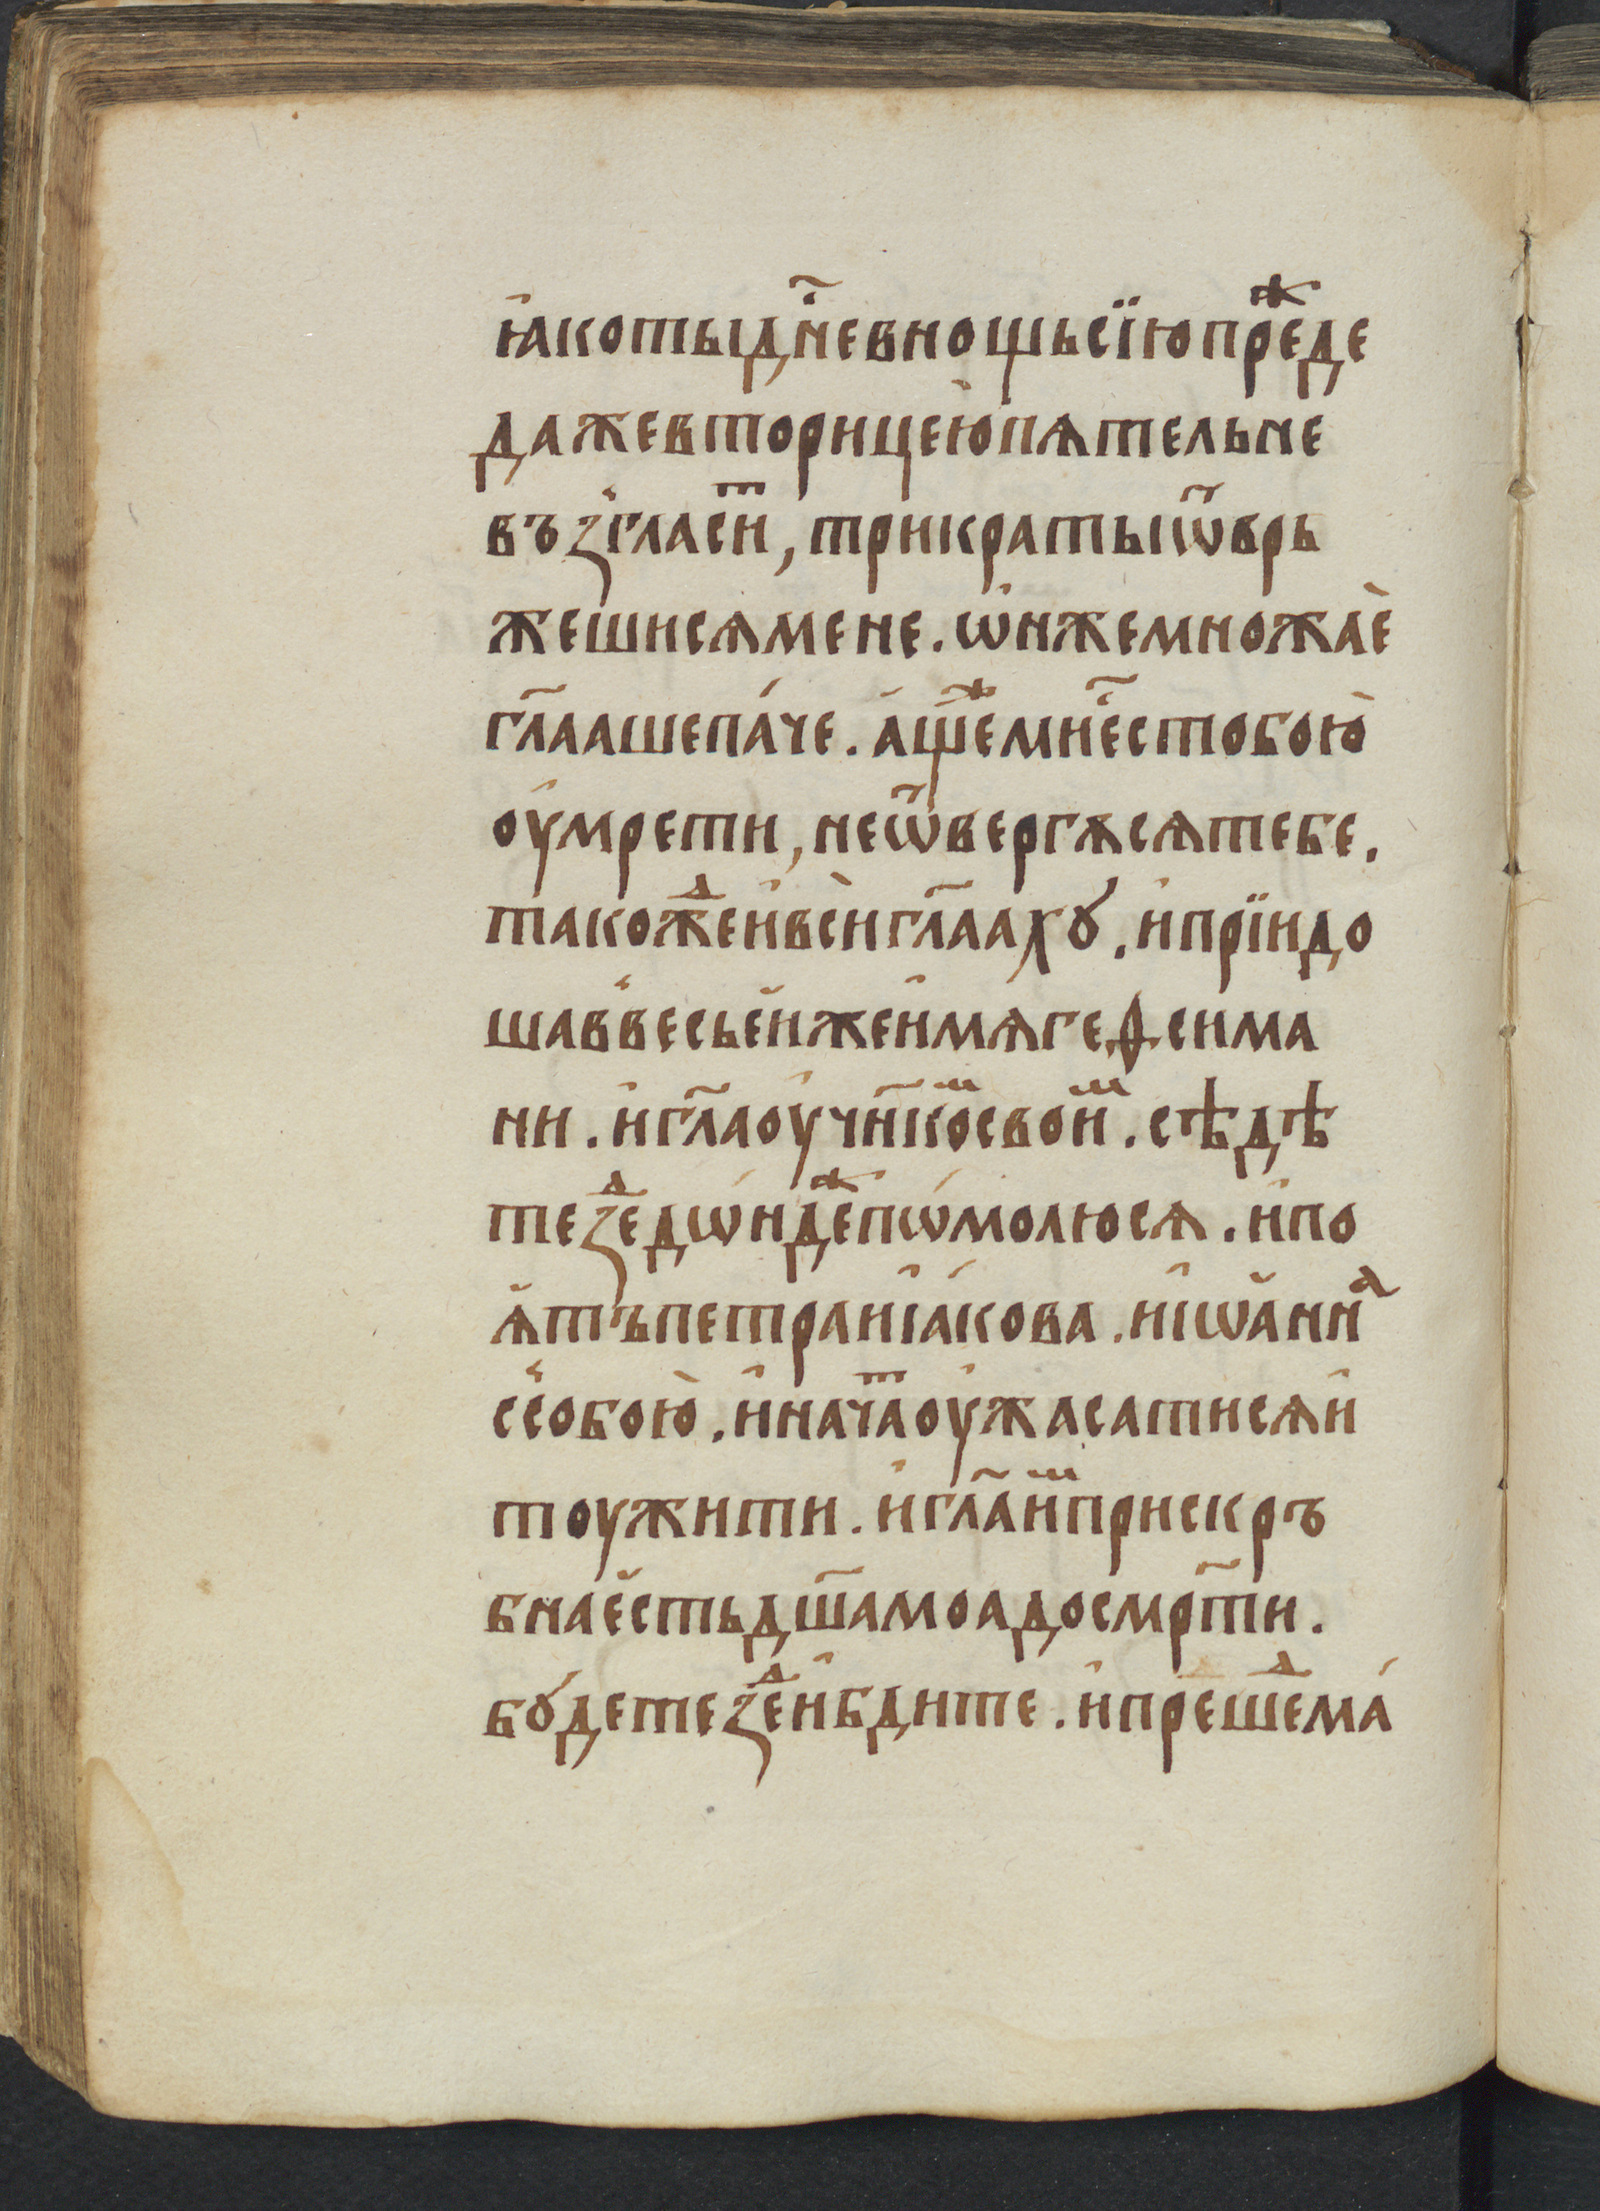 ꙗ҆котыдн҃евнощьсїюпреⷤде
дажевторицеюпѧтельне
възгласиⷮ, трикратыѿврь
жешисѧмене. ѡ҆нжемножае
гл҃аашепа́че. а҆щеⷤмн҃естобою
оумрети, неѿвергѫсѧтебе.
такожеⷣи҆всигл҃аахꙋ. и҆прїидо
шаввесьеи҆жеи҆мѧгеѳсима
ни. и҆гл҃аоучн҃коⷨсвоиⷨ. сѣдѣ
тезеⷣдѡ́ндеⷤпѡ́молюсѧ. и҆по
ѧ҆тъпетраиꙗ҆кова. и҆іѡа҆ннⷶ
ссобою. и҆начаⷮоужасатисѧи҆
тоужити. и҆гл҃аиⷨприскръ
бнаес҆тьдш҃амоадосмрт҃и.
бꙋ́детезеⷣи҆бдите. и҆прешеⷣма́